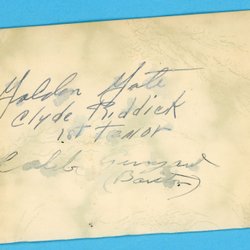 Golden Gate
Clyde Riddick
1st Tenor
Caleb Ginyard
(Baritone)